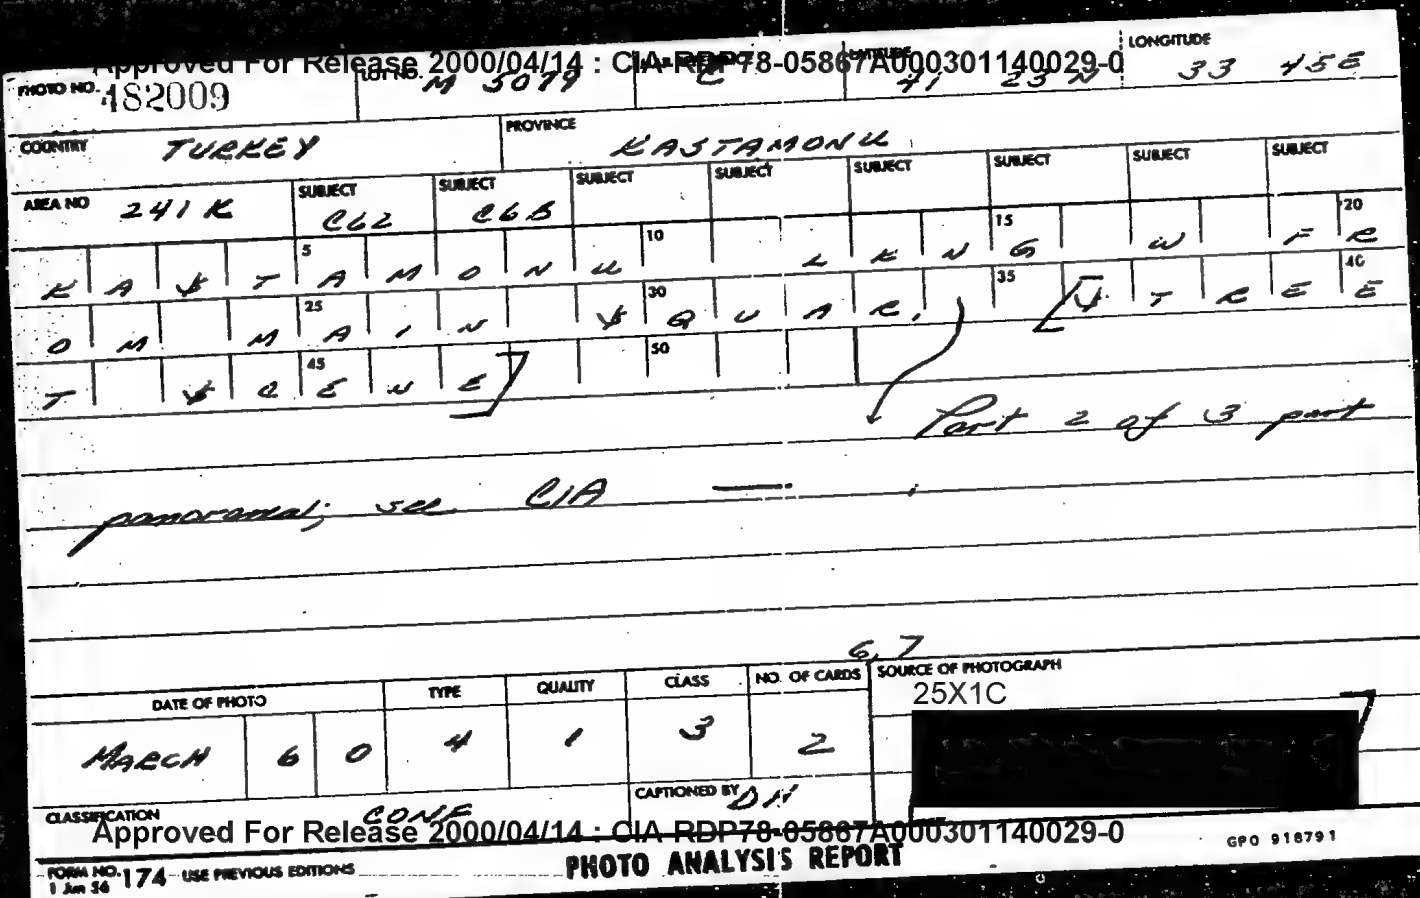 Approved For Release 2000/04/14 : CIA-RDP78-05867A000301140029-0
PHOTO NO. 482009 LOT NO. M 5079 C LATITUDE 41 23 N LONGITUDE 33 45 E
COUNTRY TURKEY PROVINCE KASTAMONU
AREA NO 241 K SUBJECT C62 SUBJECT C6B SUBJECT SUBJECT SUBJECT SUBJECT SUBJECT SUBJECT
KAST 5 AMONU 10 LKN 15 G W F 20 R
OM M 25 AIN S 30 QUAR, 35 [STRE 40 E
T SC 45 ENE] 50
Part 2 of 3 part
panorama; see CIA
6, 7
DATE OF PHOTO TYPE QUALITY CLASS NO. OF CARDS SOURCE OF PHOTOGRAPH
25X1C
MARCH 6 0 4 1 3 2
CLASSIFICATION CONF CAPTIONED BY DH
Approved For Release 2000/04/14 : CIA-RDP78-05867A000301140029-0
GPO 918791
FORM NO. 174 USE PREVIOUS EDITIONS PHOTO ANALYSIS REPORT
1 Jun 56